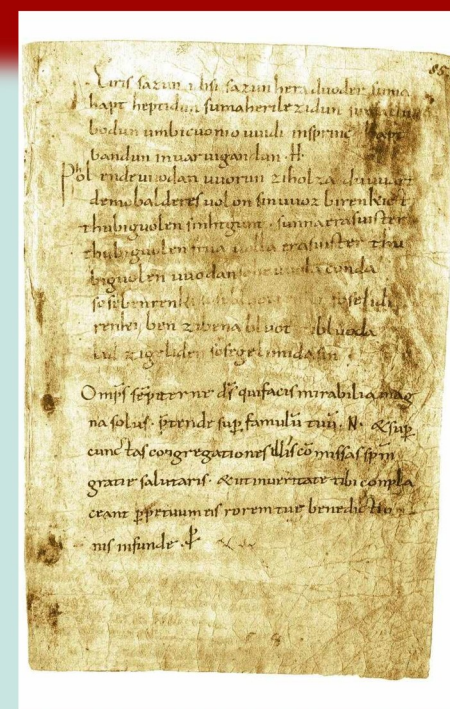 85
Eiris sazun idisi sazun hera duoder suma
hapt heptidun suma herilezidun suma clu
bodun umbicuonio uuidi insprinc hapt
bandun inuar uigandun · H ·
Phol endeuuodan uuorun ziholza du uuart
demobalderes uolon sinuuoz birenkict
thubiguolen sinhtgunt · sunna erasuister
thubiguolen friia uolla erasuister thu
biguolen uuodan uuola conda
sosebenrenki soselidi
renki ben zibena bluot zibluoda
lid zigeliden sosegelimida sin
Omps sempiterne d̄s quifacis mirabilia mag
na solus · p̄tende sup famulū tuū · N · & sup
cunctas congregationes illis cōmissas sp̄m
gratie salutaris · & ut in ueritate tibi compla
ceant ꝑpetuum eis rorem tue benedictio
nis infunde ·